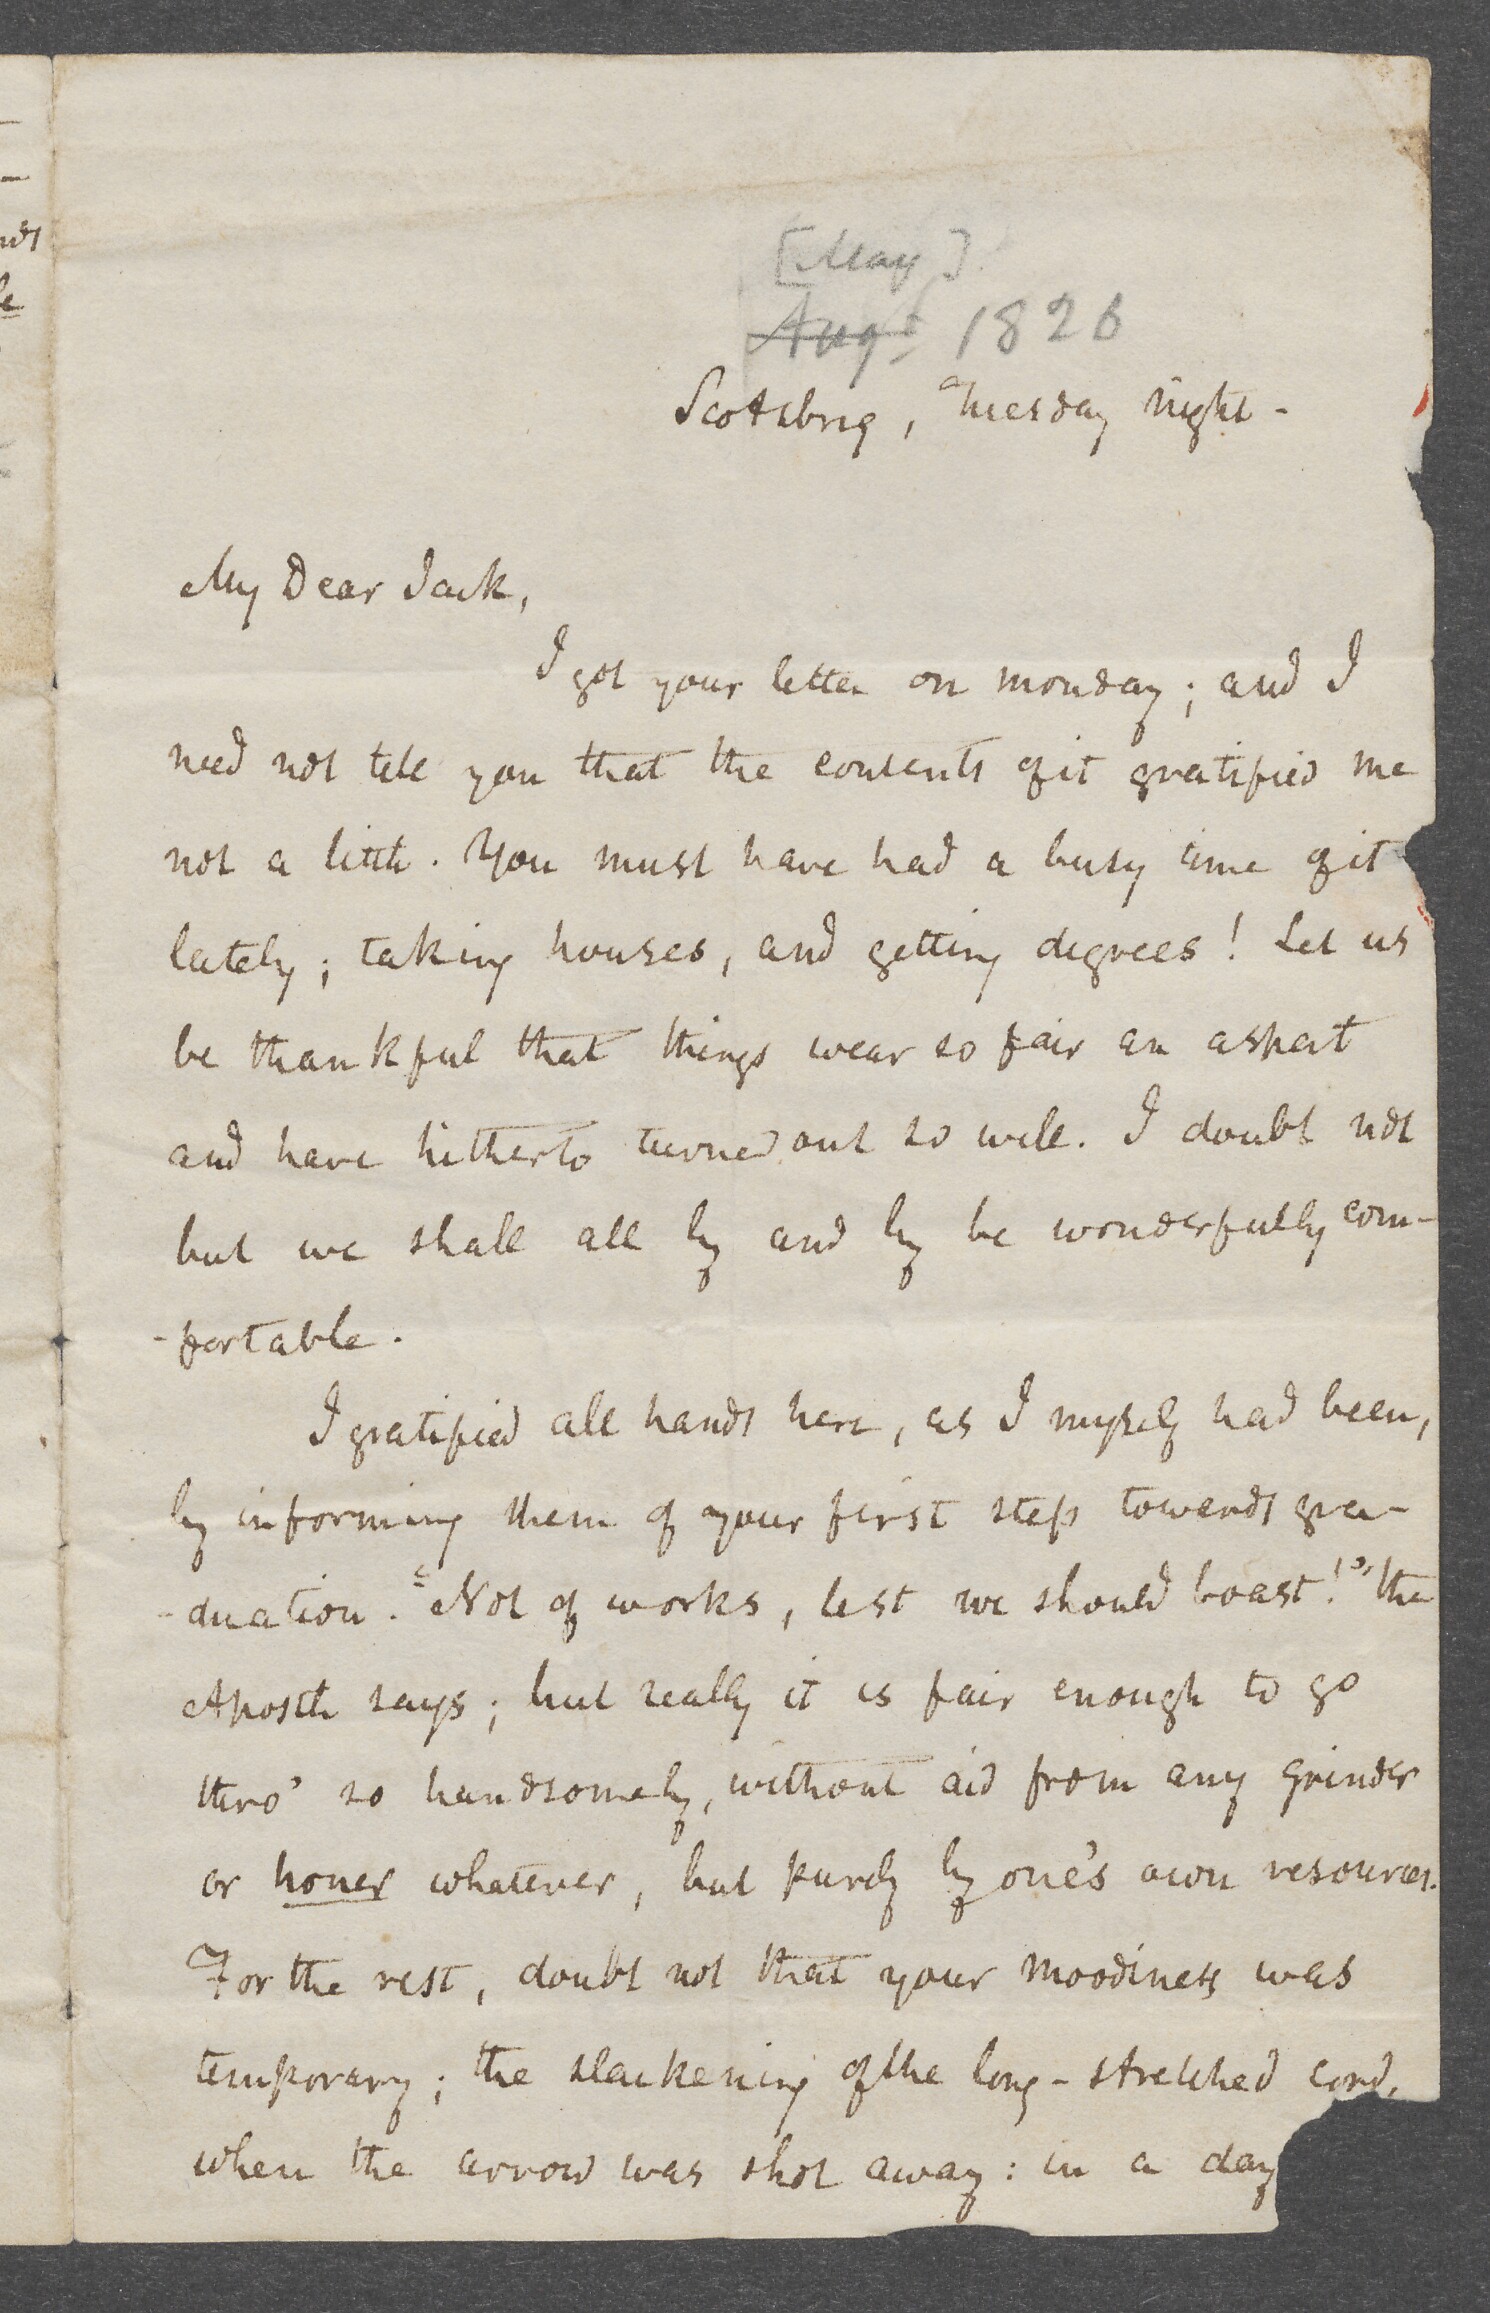 [May]
Augt 1826
Scotsbrig, Tuesday night -
My Dear Jack,
I got your letter on monday; and I
need not tell you that the contents of it gratified me
not a little. You must have had a busy time of it
lately; taking houses, and getting degrees! Let us
be thankful that things wear so fair an aspect
and have hitherto turned out so well. I doubt not
but we shall all by and by be wonderfully com-
-fortable.
I gratified all hands here, as I myself had been,
by informing them of your first step towards gra-
-duation. "Not of works, lest we should boast!" the
Apostle says; but really it is fair enough to go
thro' so handsomely, without aid from any grinder
or honer whatever, but purely by one's own resources.
For the rest, doubt not that your moodiness was
temporary; the slackening of the long-stretched cord,
when the arrow was shot away: in a day